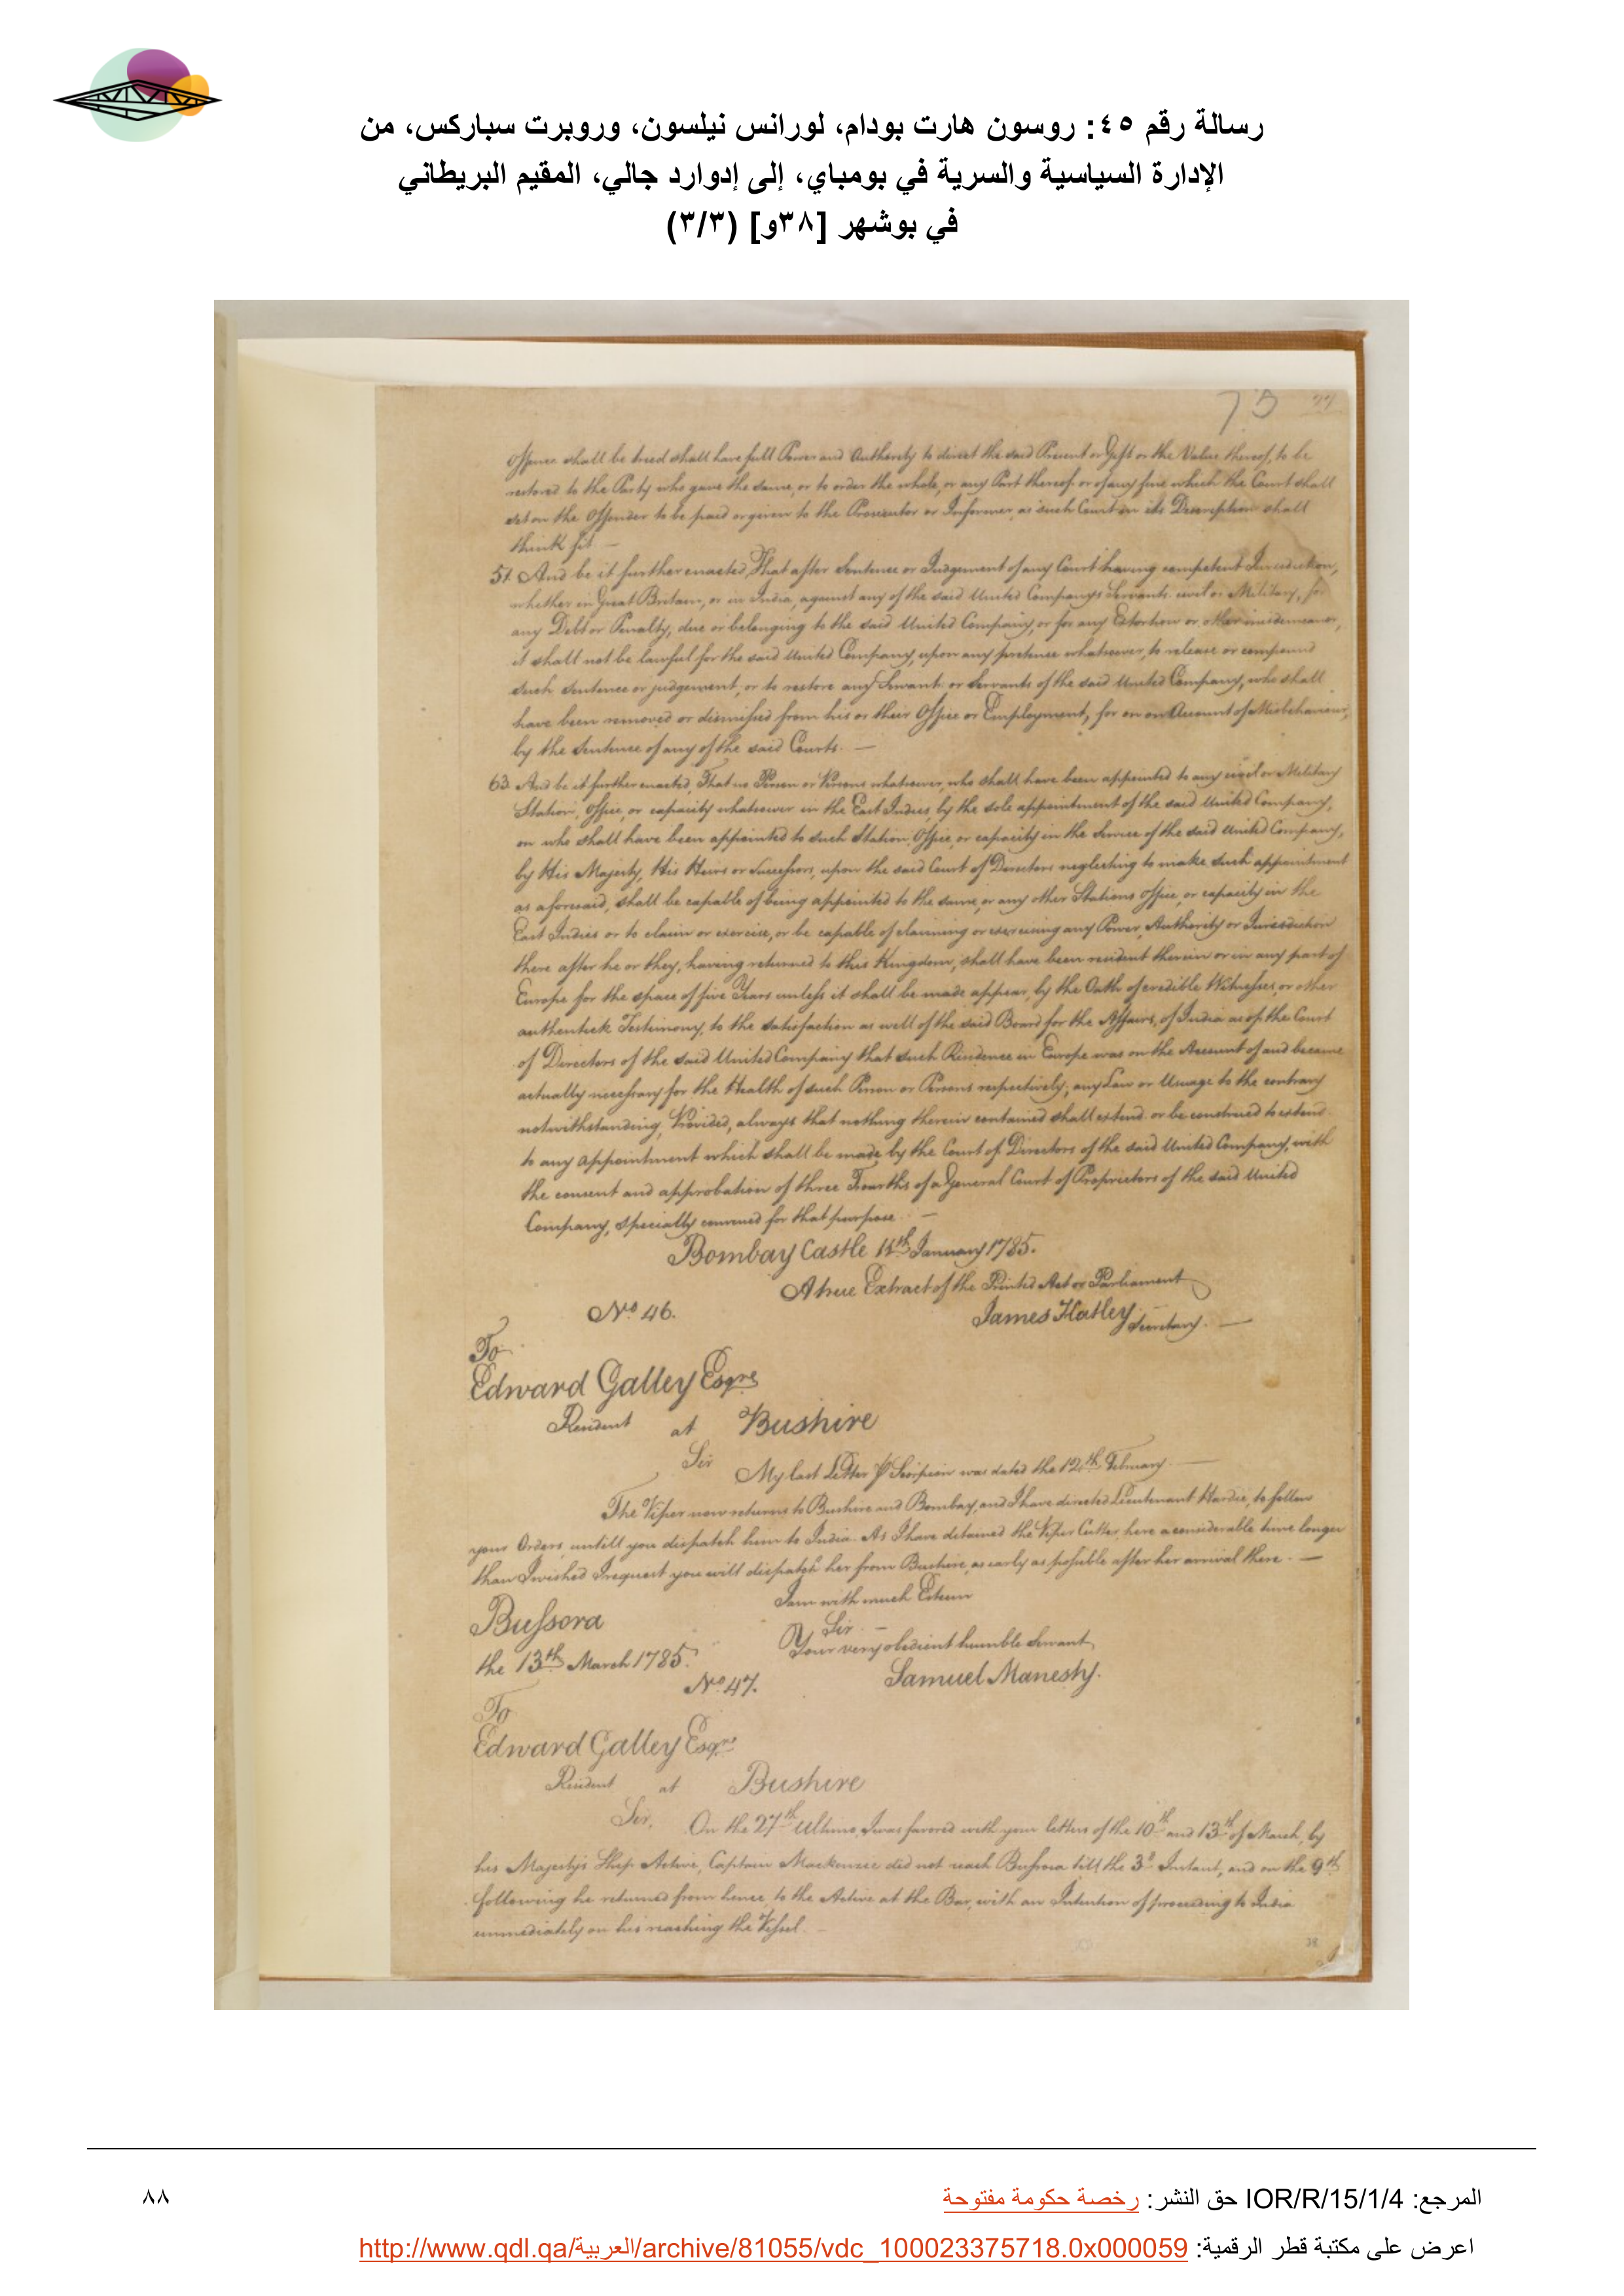 رسالة رقم ٤٥: روسون هارت بودام، لورانس نيلسون، وروبرت سباركس، من
الإدارة السياسية والسرية في بومباي، إلى إدوارد جالي، المقيم البريطاني
في بوشهر [٣٨و] (٣/٣)
75
Offence shall be tried shall have full Power and Authority to direct the said Present or Gift or the Value thereof, to be
restored to the Party who gave the same, or to order the whole, or any Part thereof or of any fine which the Court shall
set on the Offender to be paid or given to the Prosecutor or Informer, as such Court in its Discretion shall
think fit —
51. And be it further enacted, That after Sentence or Judgement of any Court having competent Jurisdiction,
whether in Great Britain, or in India, against any of the said United Companys Servants civil or Military, for
any Debt or Penalty, due or belonging to the said United Company, or for any Extortion or other misdemeanor,
it shall not be lawful for the said United Company, upon any pretence whatsoever, to release or compound
such Sentence or judgement, or to restore any Servant or Servants of the said United Company, who shall
have been removed or dismissed from his or their Office or Employment, for or on Account of Misbehaviour,
by the Sentence of any of the said Courts. —
63. And be it further enacted, That no Person or Persons whatsoever, who shall have been appointed to any civil or Military
Station, Office, or capacity whatsoever in the East Indies, by the sole appointment of the said United Company,
or who shall have been appointed to such Station, Office, or capacity in the Service of the said United Company,
by His Majesty, His Heirs or Successors, upon the said Court of Directors neglecting to make such appointment
as aforesaid, shall be capable of being appointed to the same, or any other Stations office, or capacity in the
East Indies or to claim or exercise, or be capable of claiming or exercising any Power, Authority or Jurisdiction
there after he or they, having returned to this Kingdom, shall have been resident therein or in any part of
Europe for the space of five Years unless it shall be made appear, by the Oath of credible Witnesses, or other
authentick Testimony, to the satisfaction as well of the said Board for the Affairs, of India as of the Court
of Directors of the said United Company that such Residence in Europe was on the Account of and became
actually necessary for the Health of such Person or Persons respectively; any Law or Usuage to the contrary
notwithstanding, Provided, always that nothing therein contained shall extend or be construed to extend
to any appointment which shall be made by the Court of Directors of the said United Company, with
the consent and approbation of three Fourths of a General Court of Proprietors of the said United
Company, specially convened for that purpose. —
Bombay Castle 14th January 1785.
A true Extract of the Printed Act or Parliament
No 46.
James Hatley Secretary. —
To
Edward Galley Esqre
Resident at Bushire
Sir
My last Letter Pr Scorpion was dated the 12th February. —
The Viper now returns to Bushire and Bombay, and I have directed Lieutenant Hardie, to follow
your Orders, untill you dispatch him to India. As I have detained the Viper Cutter, here a considerable time longer
than I wished I request you will dispatch her from Bushire, as early as possible after her arrival there. —
I am with much Esteem
Bussora
Sir. —
Your very obedient humble Servant
the 13th March 1785.
Samuel Manesty.
No 47.
To
Edward Galley Esqre
Resident at Bushire
Sir, On the 27th Ultimo, I was favored with your letters of the 10th and 13th of March, by
his Majestys Ship Active, Captain Mackenzie did not reach Bussora till the 3d Instant, and on the 9th
following he returned from hence to the Active at the Bar, with an Intention of proceeding to India
immediately on his reaching the Vessel. —
38
المرجع: IOR/R/15/1/4 حق النشر: رخصة حكومة مفتوحة
٨٨
اعرض على مكتبة قطر الرقمية: http://www.qdl.qa/العربية/archive/81055/vdc_100023375718.0x000059